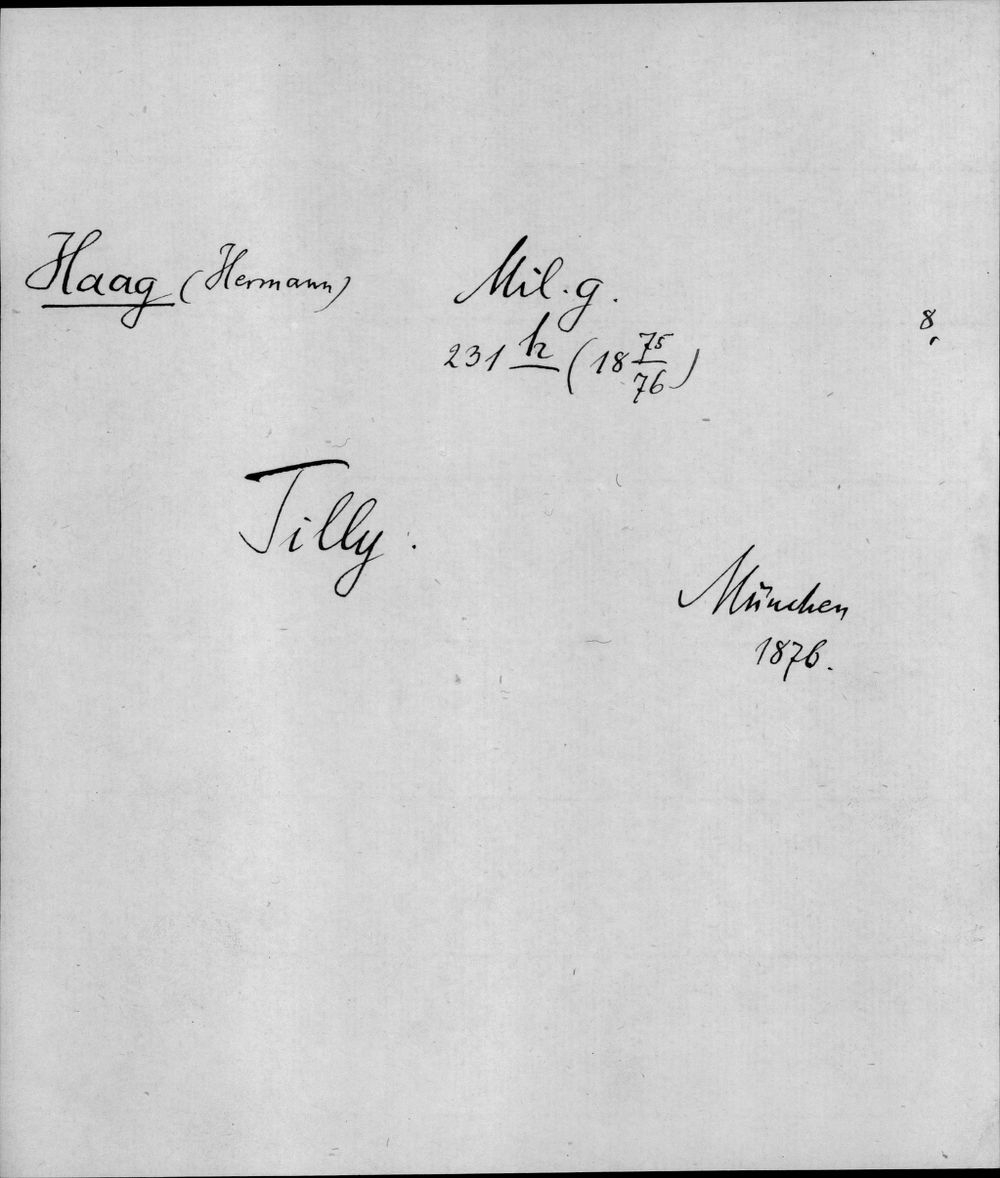 Haag (Hermann) Mil. g.
8°
231 h (18 75/76)
Tilly.
München
1876.